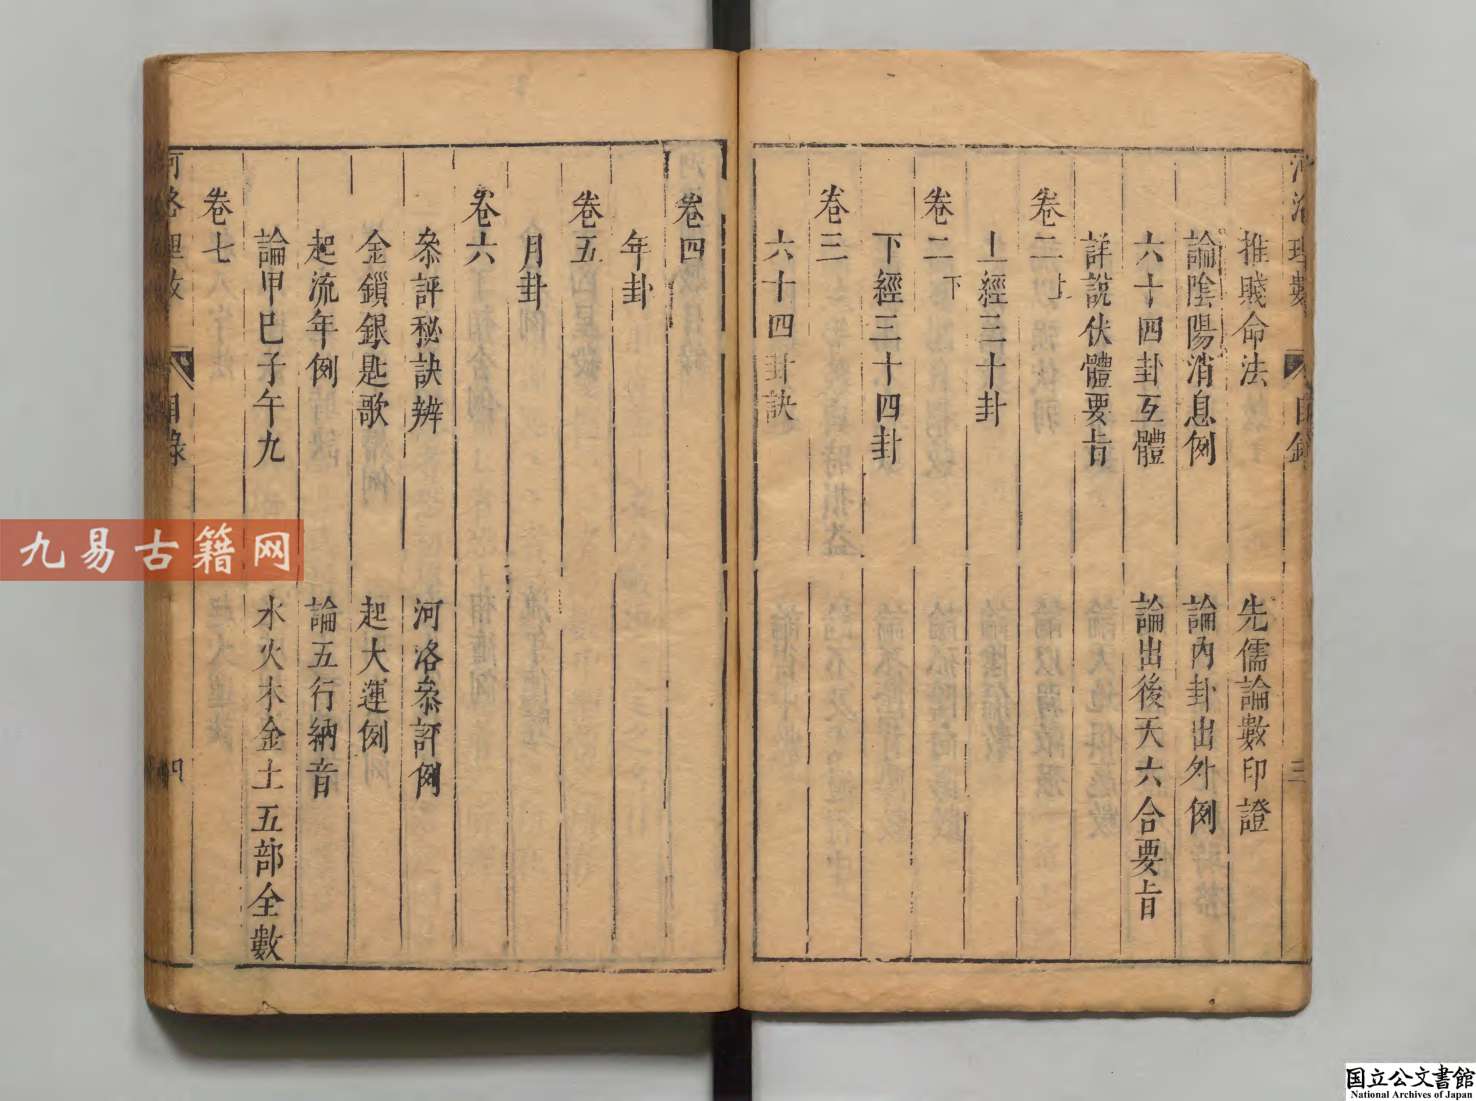 河洛理數 目錄 三
推賤命法 先儒論數印證
論陰陽消息例 論內卦出外例
六十四卦互體 論出後天六合要旨
詳說伏體要旨
卷二上
上經三十卦
卷二下
下經三十四卦
卷三
六十四卦訣
卷四
年卦
卷五
月卦
卷六
叅評秘訣辨 河洛叅評例
金鎖銀匙歌 起大運例
起流年例 論五行納音
論甲巳子午九 水火木金土五部全數
卷七
河洛理數 目錄 四
九易古籍网
国立公文書館
National Archives of Japan